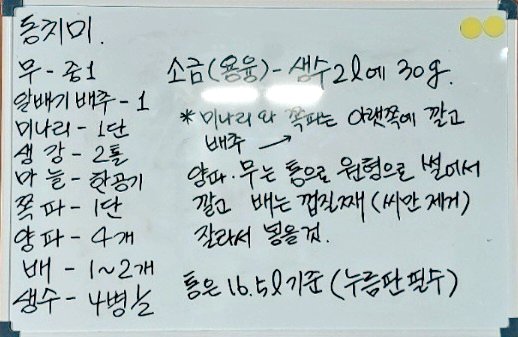 동치미.
무 - 중1
알배기 배추 - 1
미나리 - 1단
생강 - 2톨
마늘 - 한공기
쪽파 - 1단
양파 - 4개
배 - 1~2개
생수 - 4병
소금(용융) - 생수 2l에 30g.
* 미나리와 쪽파는 아랫쪽에 깔고
배추 →
양파·무는 통으로 원형으로 썰어서
깔고 배는 껍질째 (씨만 제거)
잘라서 넣을것.
통은 16.5l 기준 (누름판 필수)